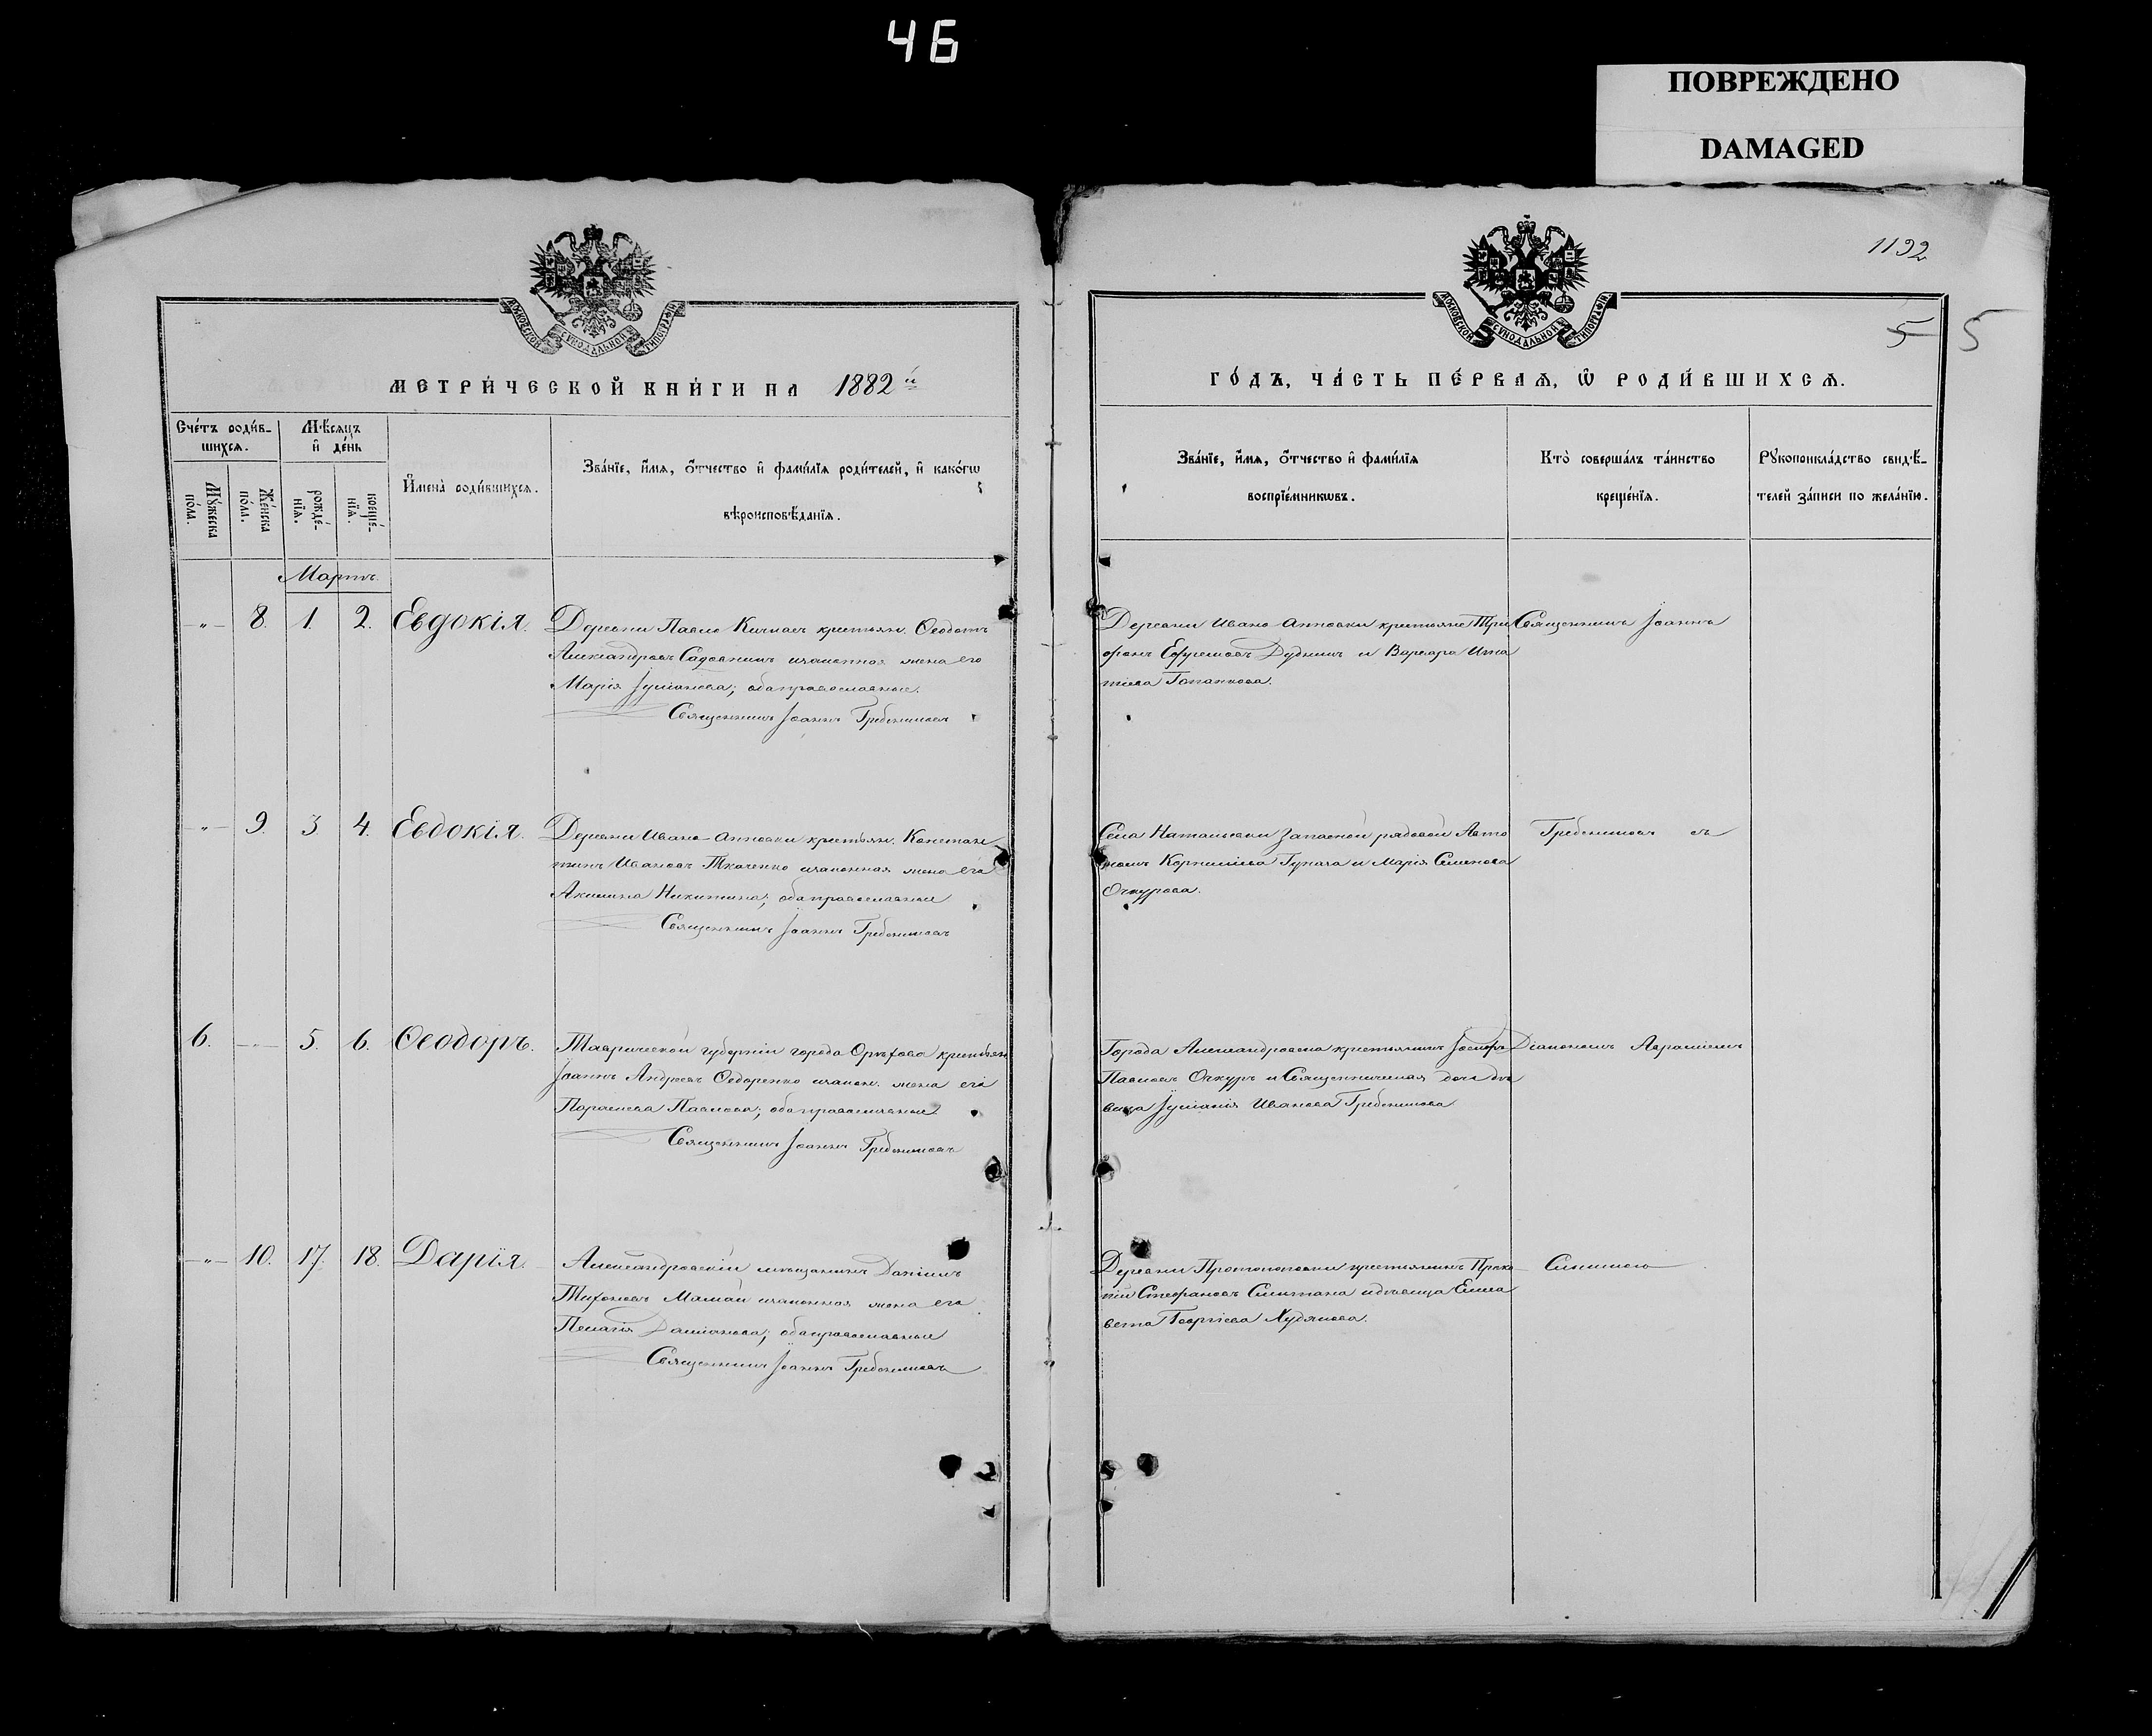 46
ПОВРЕЖДЕНО
DAMAGED
МОСКОВСКОЙ СѴНОДАЛЬНОЙ ТИПОГРАФІИ
МЕТРИ́ЧЕСКОЙ КНИ́ГИ НА 1882й
Сче́тъ роди́в-
шихсѧ.
Мѣ́сѧцъ
и҆ де́нь
Му́жеска
по́ла.
Же́нска
по́ла.
рожде́-
нїѧ.
креще́-
нїѧ.
И҆мена̀ роди́вшихсѧ.
Зва́нїе, и҆́мѧ, ѻ҆́тчество и҆ фами́лїѧ роди́телей, и҆ како́гѡ
вѣроисповѣ́данїѧ.
Мартъ.
-„- 8. 1 2. Евдокія.
Деревни Павло Кичкаса крестьян. Ѳеодотъ
Александровъ Садовничъ и законная жена его
Марія Іуліанова; оба православные.
Священникъ Іоаннъ Гребенниковъ
-„- 9. 3 4. Евдокія.
Деревни Ивано-Анновки крестьян. Констан
тинъ Ивановъ Ткаченко и законная жена его
Акилина Никитина; оба православные
Священникъ Іоаннъ Гребенниковъ
6. -„- 5. 6. Ѳеодоръ.
Таврической губерніи города Орѣхова крестьян
Іоаннъ Андреевъ Ѳедоренко и закон. жена его
Параскева Павлова; оба православные
Священникъ Іоаннъ Гребенниковъ
-„- 10. 17. 18. Дарія.
Александровскій мѣщанинъ Даніилъ
Тихоновъ Мамай и законная жена его
Пелагія Даміанова; оба православные
Священникъ Іоаннъ Гребенниковъ
1192
МОСКОВСКОЙ СѴНОДАЛЬНОЙ ТИПОГРАФІИ
5 5
ГО́ДЪ, ЧА́СТЬ ПЕ́РВАѦ, Ѽ РОДИ́ВШИХСѦ.
Зва́нїе, и҆́мѧ, ѻ҆́тчество и҆ фами́лїѧ
воспрїе́мникѡвъ.
Кто̀ соверша́лъ та́инство
креще́нїѧ.
Рꙋкоприкла́дство свидѣ́-
телей за́писи по жела́нїю.
Деревни Ивано-Анновки крестьяне Три
фонъ Ефремовъ Дудникъ и Варвара Игна
тіева
Священникъ Іоаннъ
Села Натальевки запасной рядовой Авто
номъ Корниліевъ и Марія Семенова
Очкурова.
Гребенниковъ съ
Города Александровска крестьянинъ Іосифъ
Павловъ Очкуръ и Священническая дочь дѣ
вица Іуліанія Иванова Гребенникова
Діакономъ Авраміемъ
Деревни Протопоповки крестьянинъ Проко
пій Стефановъ Сметана и дѣвица Елиса
вета Георгіева Худякова.